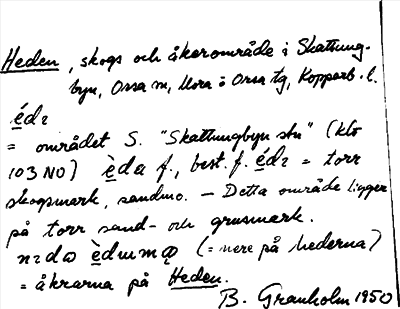 Heden, skogs och åkerområde i Skattung-
byn, Orsa sn, Mora o Orsa tg, Kopparb. l.
édı
= området S. "Skattungbyn stn" (kbr
103 NO) èda f., best. f. édı = torr
skogsmark, sandmo. — Detta område ligger
på torr sand- och grusmark.
nıdə èdumǫ (= nere på hederna)
= åkrarna på Heden.
B. Granholm 1950